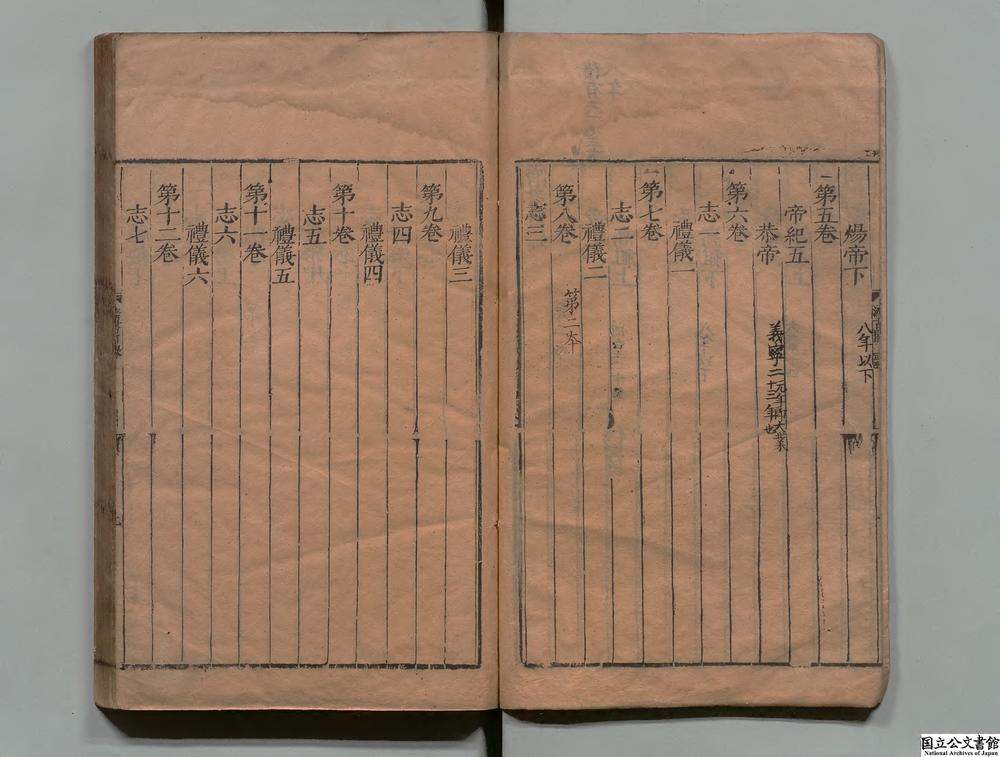 煬帝下
八年以下
第五卷
帝紀五
恭帝
義寧二
元年
即大業
十三年也
第六卷
志一
禮儀一
第七卷
志二
禮儀二
第八卷
第二本
志三
禮儀三
第九卷
志四
禮儀四
第十卷
志五
禮儀五
第十一卷
志六
禮儀六
第十二卷
志七
国立公文書館
National Archives of Japan